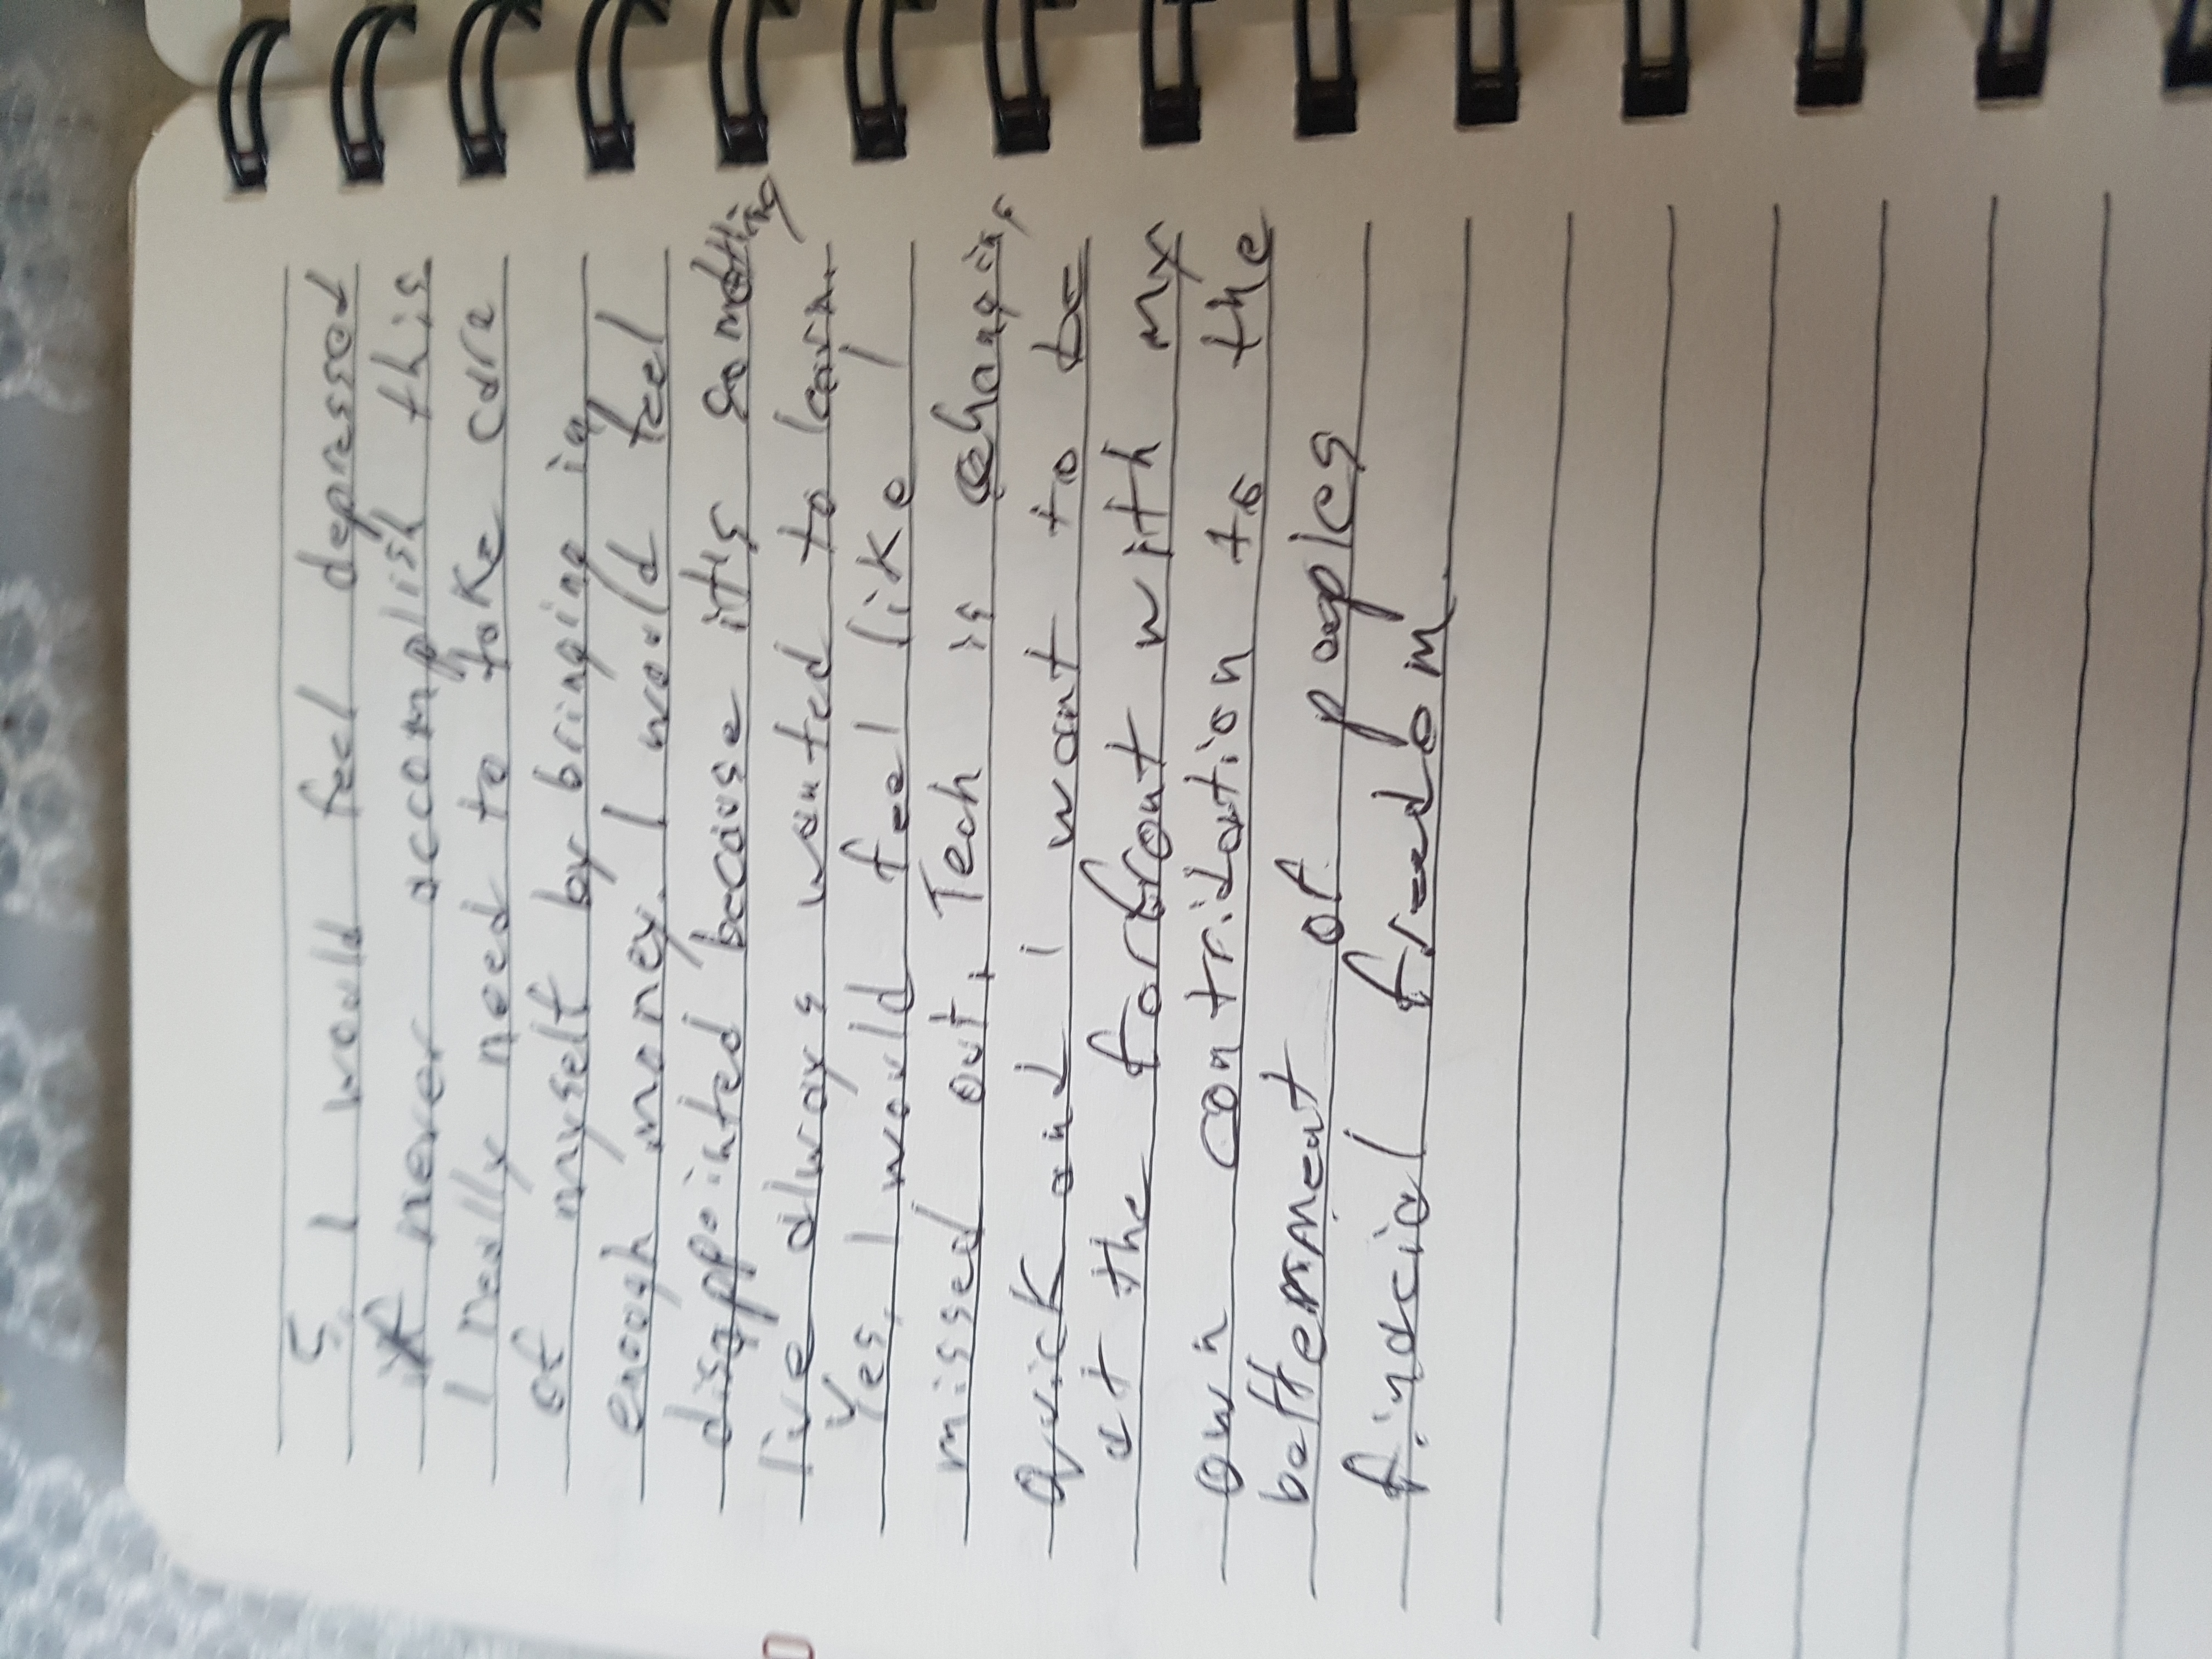 5. I would feel depressed
if never accomplish this
I really need to take care
of myself by bringing in
enough money. I would feel
disappointed because it's something
I've always wanted to learn.
Yes, I would feel like I
missed out, Tech is changing
quick and i want to be
at the forfront with my
own contridution to the
betterment of peoples
finacial freedom.